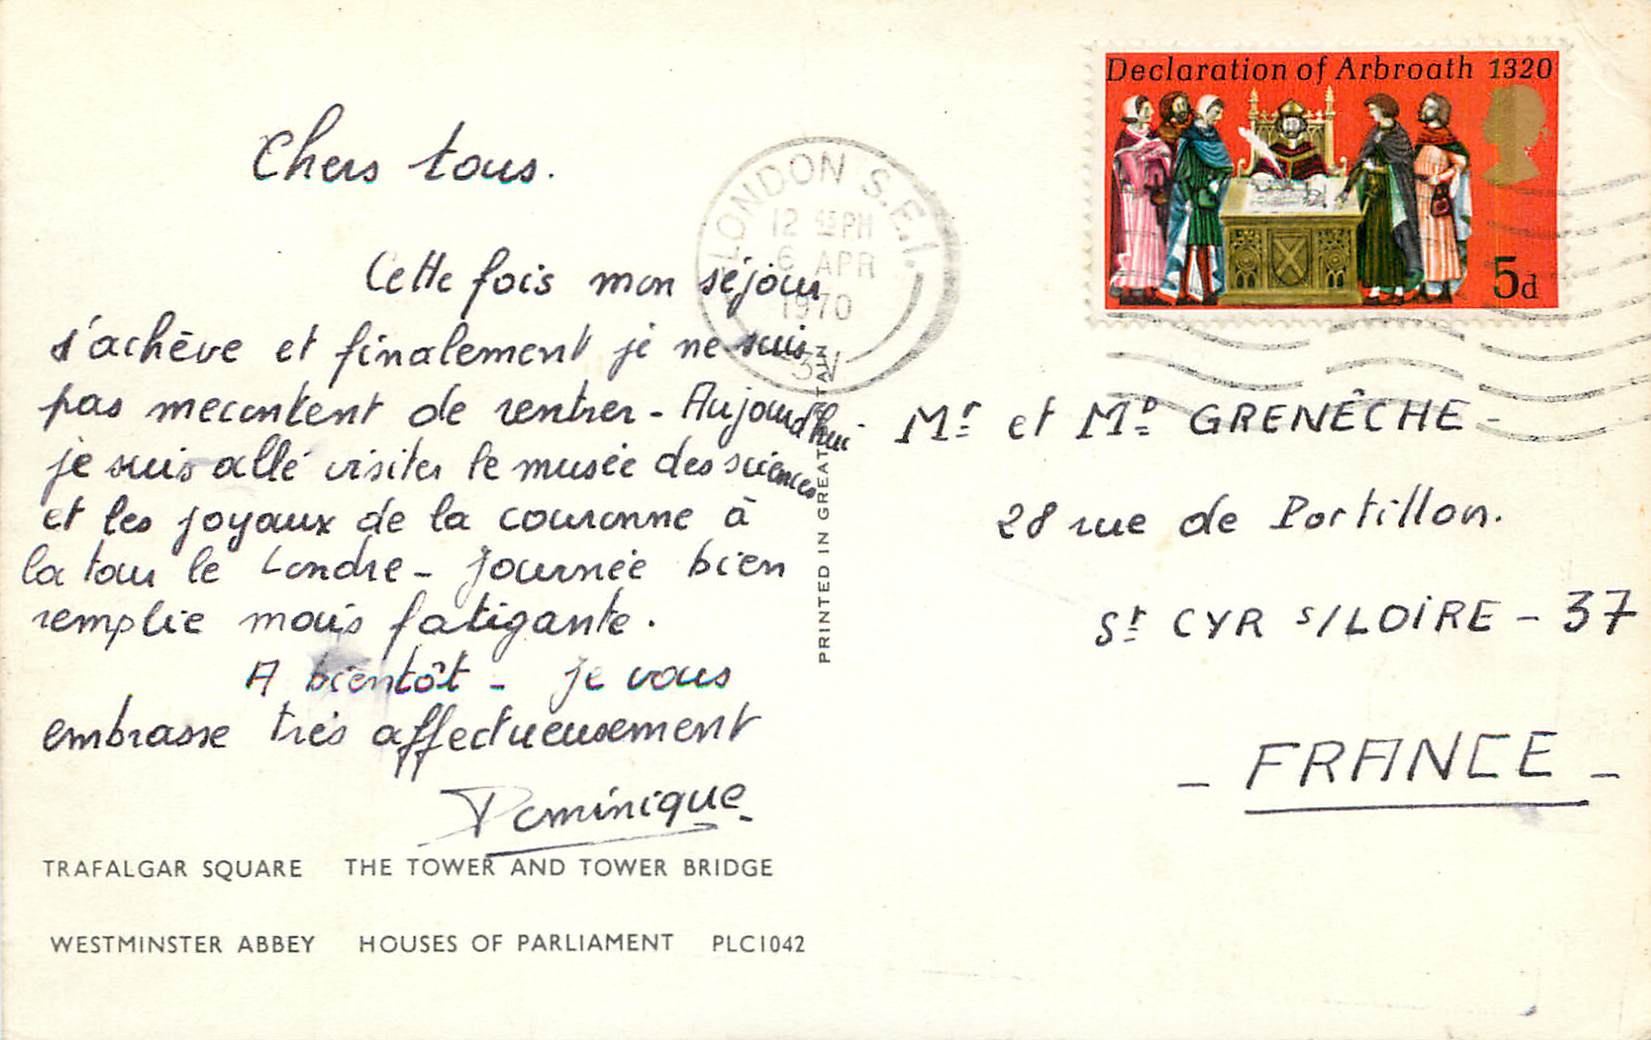 Chers tous.
Cette fois mon séjour
s'achève et finalement je ne suis
pas mecontent de rentrer - Aujourd'hui
je suis allé visiter le musée des sciences
et les joyaux de la couronne à
la tour le Londre - Journée bien
remplie mais fatigante.
A bientôt - je vous
embrasse très affectueusement
Dominique
TRAFALGAR SQUARE THE TOWER AND TOWER BRIDGE
WESTMINSTER ABBEY HOUSES OF PARLIAMENT PLC1042
PRINTED IN GREAT BRITAIN
LONDON S.E.1.
12 45 PM
6 APR
1970
Declaration of Arbroath 1320
5d
Mr et Md GRENÊCHE -
28 rue de Portillon.
St CYR s/LOIRE - 37
- FRANCE -